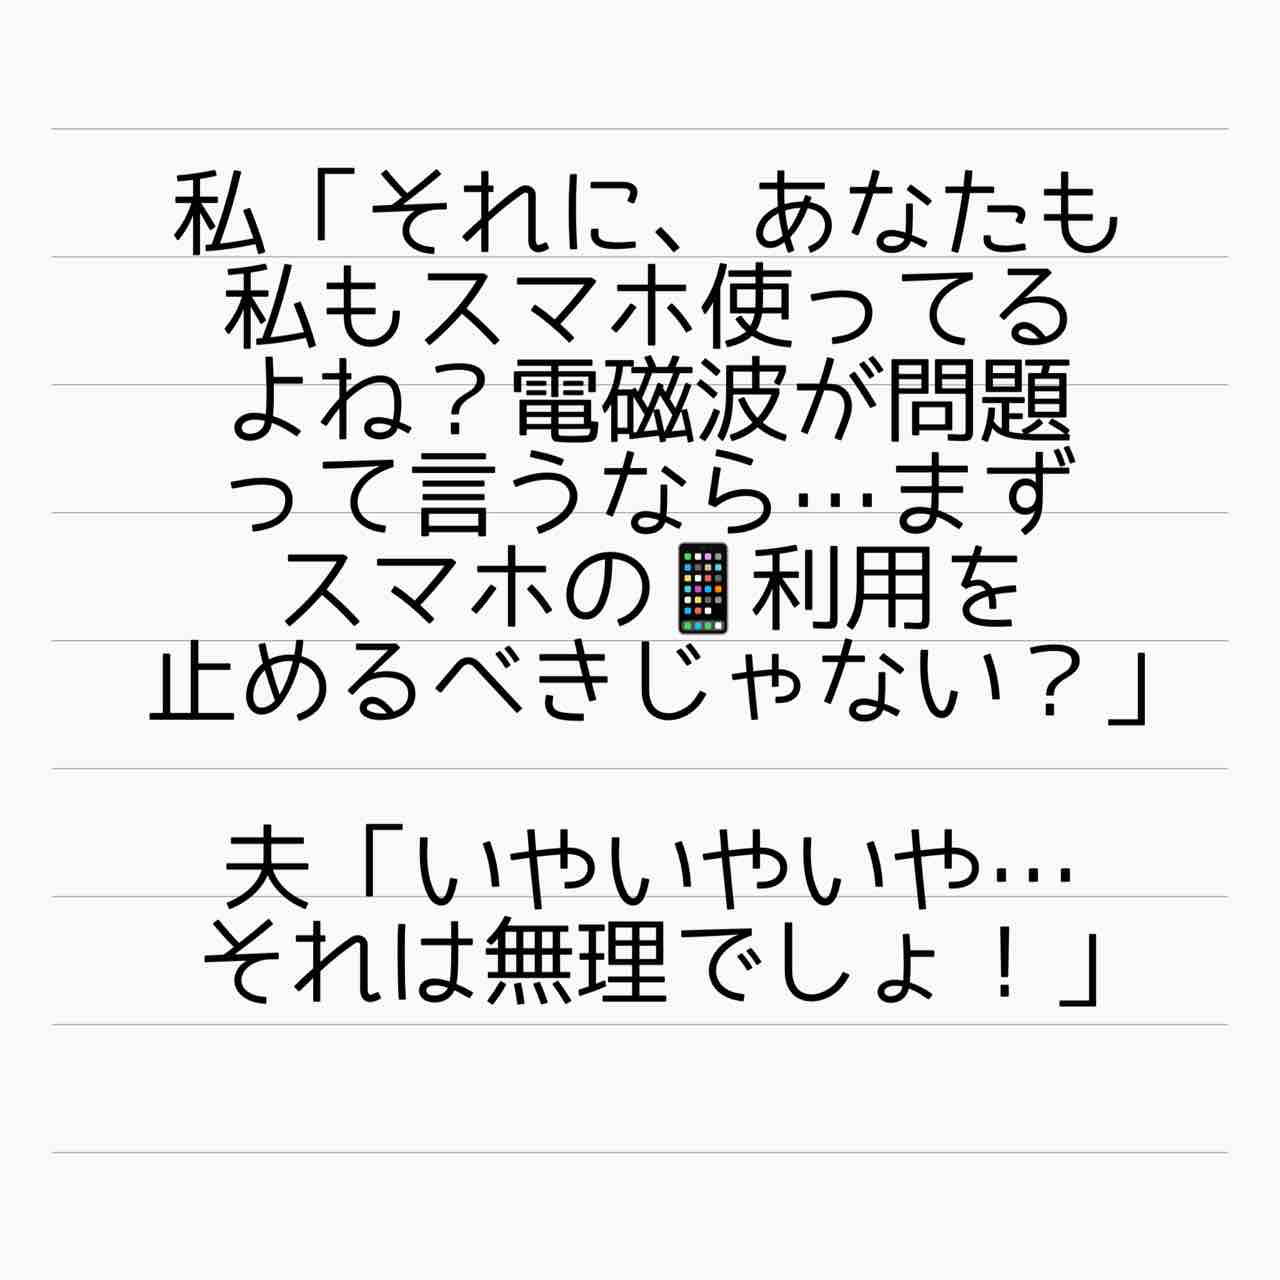 私「それに、あなたも
私もスマホ使ってる
よね？電磁波が問題
って言うなら…まず
スマホの📱利用を
止めるべきじゃない？」
夫「いやいやいや…
それは無理でしょ！」